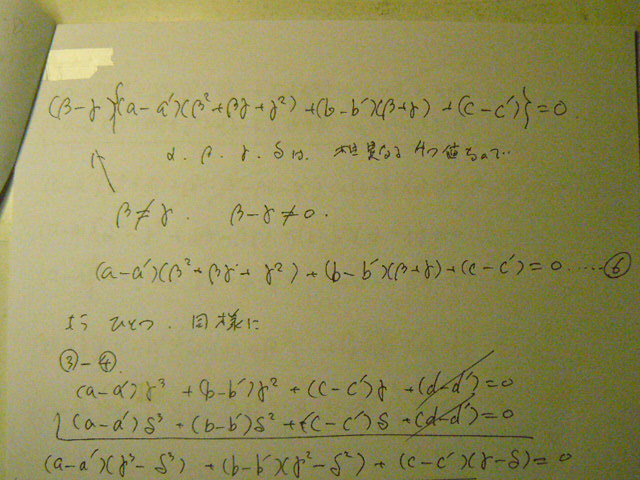 (β-γ){(a-a')(β²+βγ+γ²)+(b-b')(β+γ)+(c-c')}=0
α.β.γ.δは、相異なる4つ値なので…
β≠γ. β-γ≠0.
(a-a')(β²+βγ+γ²)+(b-b')(β+γ)+(c-c')=0……⑥
もう ひとつ. 同様に
③-④
(a-a')γ³+(b-b')γ²+(c-c')γ+(d-d')=0
(a-a')δ³+(b-b')δ²+(c-c')δ+(d-d')=0
(a-a')(γ³-δ³)+(b-b')(γ²-δ²)+(c-c')(γ-δ)=0